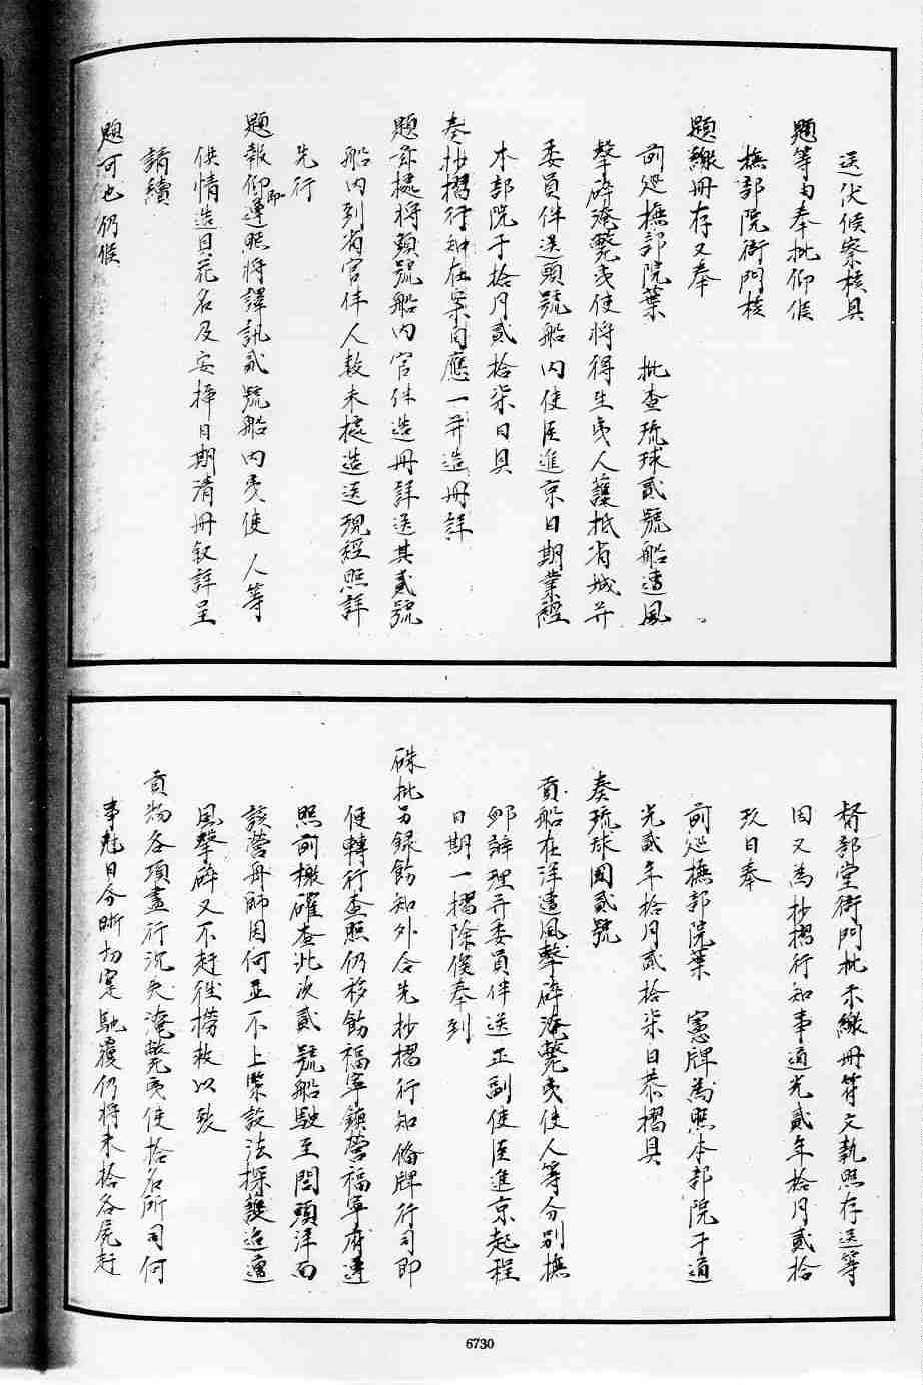 送伏候察核具
題等由奉批仰候
撫部院衙門核
題繳冊存又奉
前巡撫部院葉 批查琉球貳號船遭風
擊碎淹斃夷使將得生夷人護抵省城并
委員伴送頭號船內使臣進京日期業經
本部院于拾月貳拾柒日具
奏抄摺行知在案自應一并造冊詳
題茲據將頭號船內官伴造冊詳送其貳號
船內到省官伴人數未據造送現經照詳
先行
題報仰即遵照將譯訊貳號船內夷使人等
供情造具花名及安插日期清冊叙詳呈
請續
題可也仍候
督部堂衙門批示繳冊符文執照存送等
因又為抄摺行知事道光貳年拾月貳拾
玖日奉
前巡撫部院葉 憲牌為照本部院于道
光貳年拾月貳拾柒日恭摺具
奏琉球國貳號
貢船在洋遭風擊碎淹斃夷使人等分別撫
卹辦理并委員伴送正副使臣進京起程
日期一摺除俟奉到
硃批另錄飭知外合先抄摺行知備牌行司即
便轉行查照仍移飭福寧鎮營福寧府遵
照前檄確查此次貳號船駛至閩頭洋面
該營舟師因何並不上緊設法探護迨遭
風擊碎又不赶往撈救以致
貢物各項盡行沉失淹斃夷使拾名所司何
事尅日分晰切寔馳覆仍將未拾各屍赶